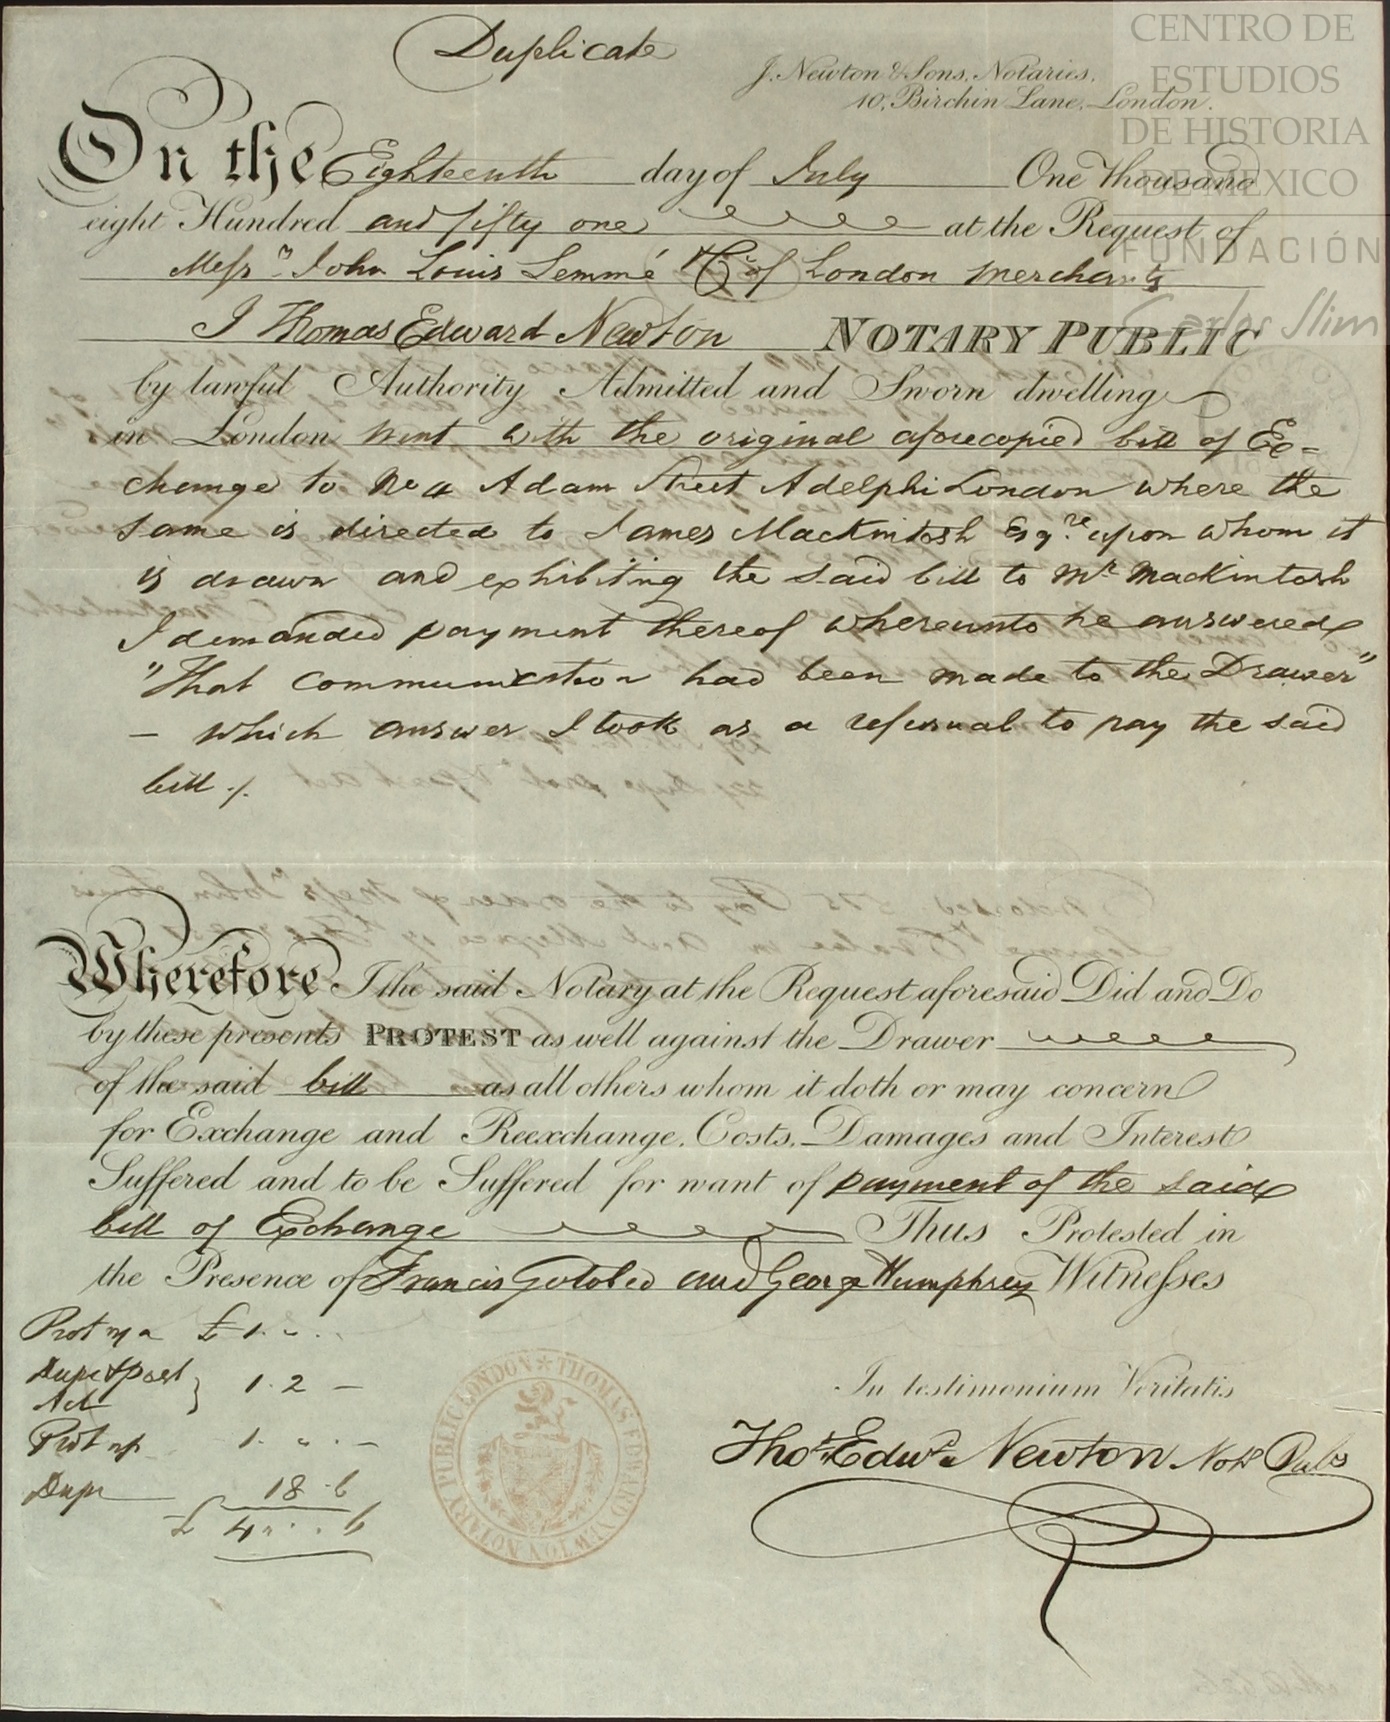 Duplicate
J. Newton & Sons, Notaries,
10, Birchin Lane, London.
CENTRO DE
ESTUDIOS
DE HISTORIA
DE MÉXICO
FUNDACIÓN
Carlos Slim
On the Eighteenth day of July One Thousand
eight Hundred and fifty one at the Request of
Messrs. John Louis Lemmé & Co. of London Merchants
I Thomas Edward Newton NOTARY PUBLIC
by lawful Authority Admitted and Sworn dwelling
in London went with the original aforecopied bill of Ex=
change to No 4 Adam Street Adelphi London where the
same is directed to James Mackintosh Esqre. upon whom it
is drawn and exhibiting the said bill to Mr. Mackintosh
I demanded payment thereof whereunto he answered
"That communication had been made to the Drawer"
— which answer I took as a refusual to pay the said
bill ./.
Wherefore I the said Notary at the Request aforesaid Did and Do
by these presents PROTEST as well against the Drawer
of the said bill as all others whom it doth or may concern
for Exchange and Reexchange, Costs, Damages and Interest
Suffered and to be Suffered for want of payment of the said
bill of Exchange Thus Protested in
the Presence of Francis Gotobed and George Humphrey Witnesses
Prot £ 1. „ .
Dupe & past } 1. 2 —
Act
Prot np 1. „ . —
Dupe 18. 6
£ 4 „ . . 6
THOMAS EDWARD NEWTON NOTARY PUBLIC LONDON
In testimonium Veritatis
Thos. Edwd. Newton Noty Pubc